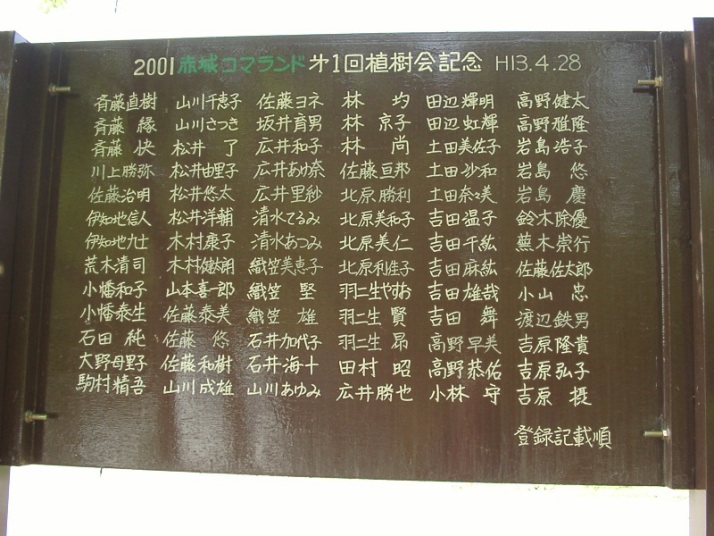 2001赤城コマランド才1回植樹会記念 H13.4.28
斉藤直樹 山川千恵子 佐藤ヨネ 林 均 田辺輝明 高野健太
斉藤 縁 山川さつき 坂井育男 林 京子 田辺虹輝 高野雅隆
斉藤 快 松井 了 広井和子 林 尚 土田美佐子 岩島浩子
川上勝弥 松井由里子 広井あゆ奈 佐藤亘邦 土田沙和 岩島 悠
佐藤治明 松井悠太 広井里紗 北原勝利 土田奈々美 岩島 慶
伊知地信人 松井洋輔 清水てるみ 北原美和子 吉田温子 鈴木除優
伊知地九士 木村康子 清水あつみ 北原美仁 吉田千紘 蕪木崇行
荒木清司 木村健太朗 織笠美恵子 北原利生子 吉田麻紘 佐藤佐太郎
小幡和子 山本喜一郎 織笠 堅 羽二生やすお 吉田雄哉 小山 忠
小幡泰生 佐藤泰美 織笠 雄 羽二生 賢 吉田 舞 渡辺鉄男
石田 純 佐藤 悠 石井加代子 羽二生 昴 高野早美 吉原隆貴
大野母里子 佐藤和樹 石井海十 田村 昭 高野恭佑 吉原弘子
駒村精吾 山川成雄 山川あゆみ 広井勝也 小林 守 吉原 摂
登録記載順